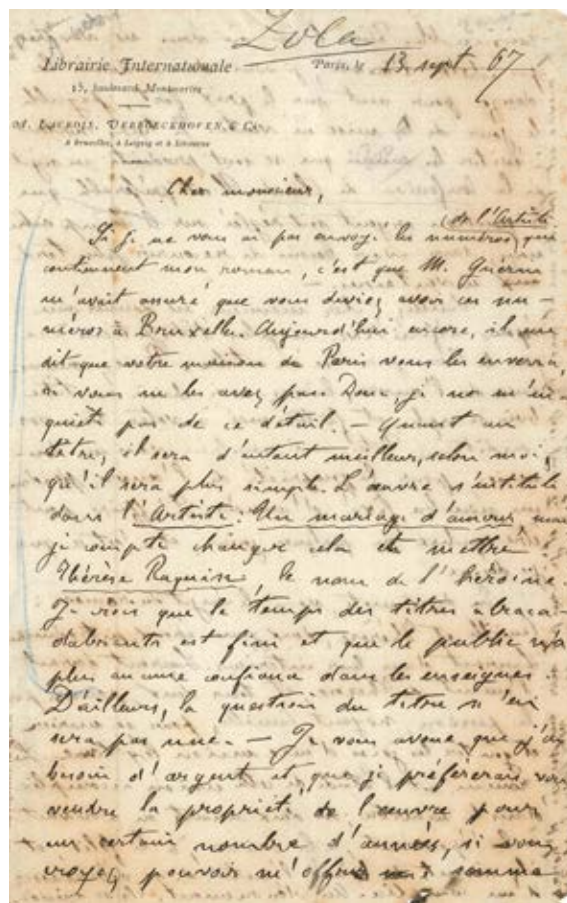 Zola
Librairie Internationale
Paris, le 13 sept. 67
15, boulevard Montmartre
LACROIX, VERBOECKHOVEN, & Cie
A Bruxelles, à Leipzig et à Livourne
Cher monsieur,
de l'Artiste
Si je ne vous ai pas envoyé les numéros, qui
contiennent mon roman, c'est que M. Guérin
m'avait assuré que vous deviez avoir ces nu-
méros à Bruxelles. Aujourd'hui encore, il me
dit que votre maison de Paris vous les enverra,
si vous ne les avez pas. Donc, je ne m'in-
quiète pas de ce détail. — Quant au
titre, il sera d'autant meilleur, selon moi,
qu'il sera plus simple. L'œuvre s'intitule
dans l'Artiste: Un mariage d'amour, mais
je compte changer cela et mettre
Thérèse Raquin, le nom de l'héroïne.
Je crois que le temps des titres abraca-
dabrants est fini et que le public n'a
plus aucune confiance dans les enseignes.
D'ailleurs, la question du titre n'en
sera pas une. — Je vous avoue que j'ai
besoin d'argent et que je préférerais vous
vendre la propriété de l'œuvre pour
un certain nombre d'années, si vous
croyez pouvoir m'offrir une somme